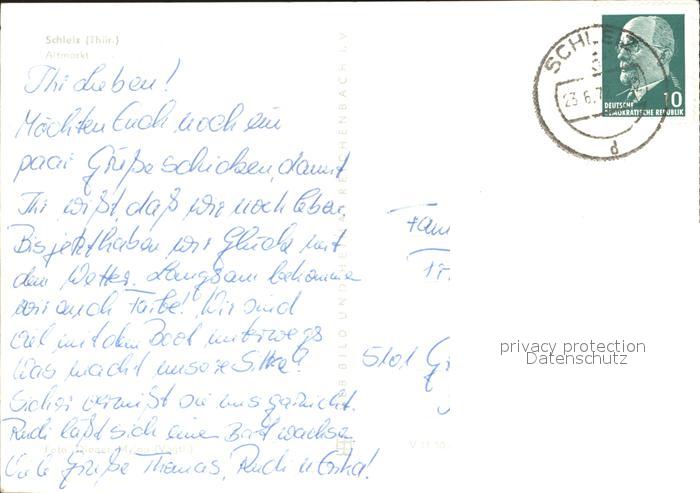 Schleiz (Thür.)
Altmarkt
Ihr Lieben!
Möchten Euch noch ein
paar Grüße schicken, damit
Ihr wißt, daß wir noch leben.
Bis jetzt haben wir Glück mit
dem Wetter. Langsam bekommen
wir auch Farbe! Wir sind
viel mit dem Boot unterwegs
Was macht unsere Silka?
Sicher vermißt sie uns gar nicht.
Rudi läßt sich einen Bart wachsen
Viele Grüße Thomas, Rudi u Erika!
Fam
5101
SCHLEIZ
23.6.7
d
10
DEUTSCHE
DEMOKRATISCHE REPUBLIK
BILD UND
REICHENBACH I. V.
privacy protection
Datenschutz